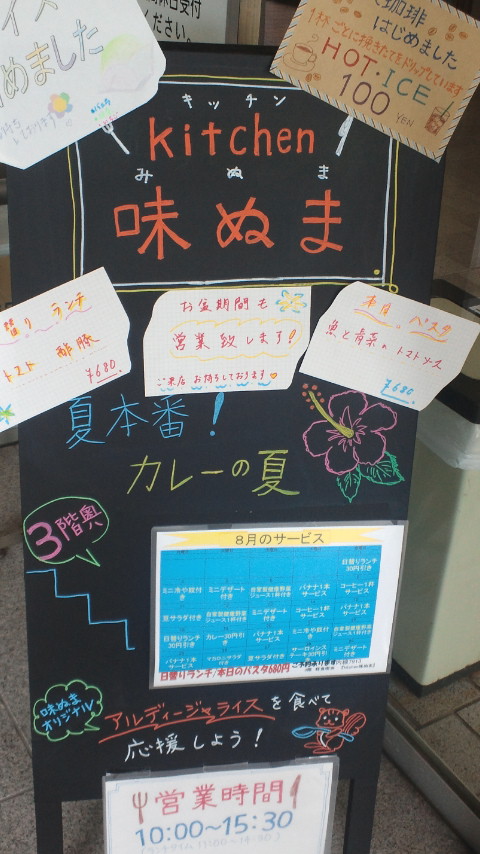 イス
めました
ください。
珈琲
はじめました
1杯ごとに挽きたてをドリップしています
HOT・ICE
100 YEN
キッチン
kitchen
みぬま
味ぬま
替り ランチ
トマト 酢豚
¥680
お盆期間も
営業致します!
ご来店 お待ちしております
本日 パスタ
魚と青菜のトマトソース
¥680
夏本番!
カレーの夏
3階奥
8月のサービス
日替りランチ
30円引き
ミニ冷や奴付き
ミニデザート付き
自家製健康野菜ジュース1杯付き
バナナ1本サービス
コーヒー1杯サービス
豆サラダ付き
自家製健康野菜ジュース1杯付き
ミニデザート付き
コーヒー1杯サービス
バナナ1本サービス
日替りランチ30円引き
カレー30円引き
バナナ1本サービス
ミニ冷や奴付き
自家製健康野菜ジュース1杯付き
バナナ1本サービス
マカロニサラダ付き
豆サラダ付き
サーロインステーキ30円引
ミニデザート付き
日替りランチ/本日のパスタ680円
味ぬま
オリジナル
アルディージャライスを食べて
応援しよう!
営業時間
10:00~15:30